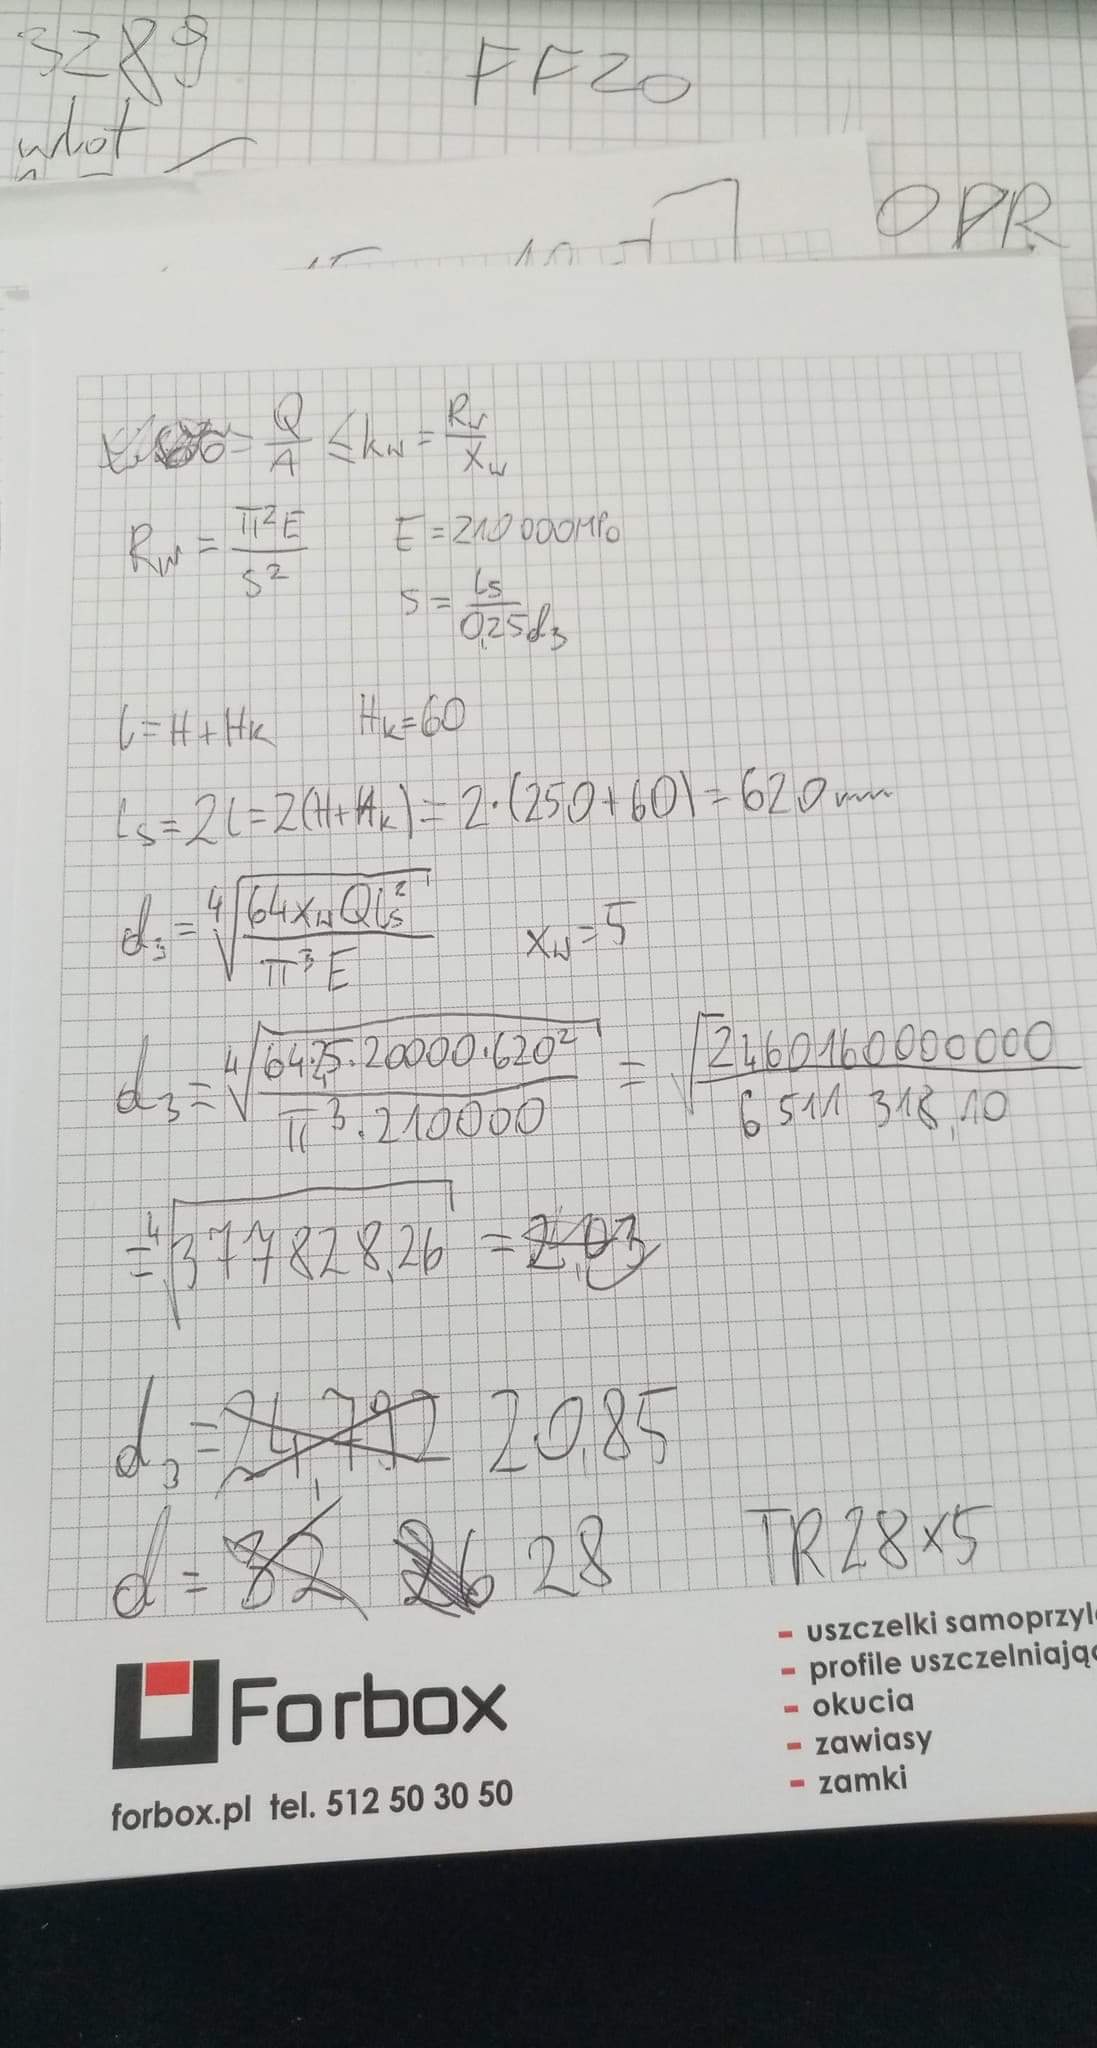 3289
FF20
wlot
OPR
= Q/A ≤ kw = Rw/xw
Rw = π²E/s² E = 210 000 MPa
s = ls/0,25d₃
l = H + Hk Hk = 60
ls = 2l = 2(H+Hk) = 2·(250+60) = 620 mm
d₃ = ⁴√(64xwQls²/π³E) xw = 5
d₃ = ⁴√(64·5·20000·620²/π³·210000) = √(2460160000000/6511318,10)
= ⁴√377828,26 = 2,03
d₃ = 24,792 20,85
d = 32 26 28 TR28x5
Forbox
forbox.pl tel. 512 50 30 50
- uszczelki samoprzyl
- profile uszczelniając
- okucia
- zawiasy
- zamki